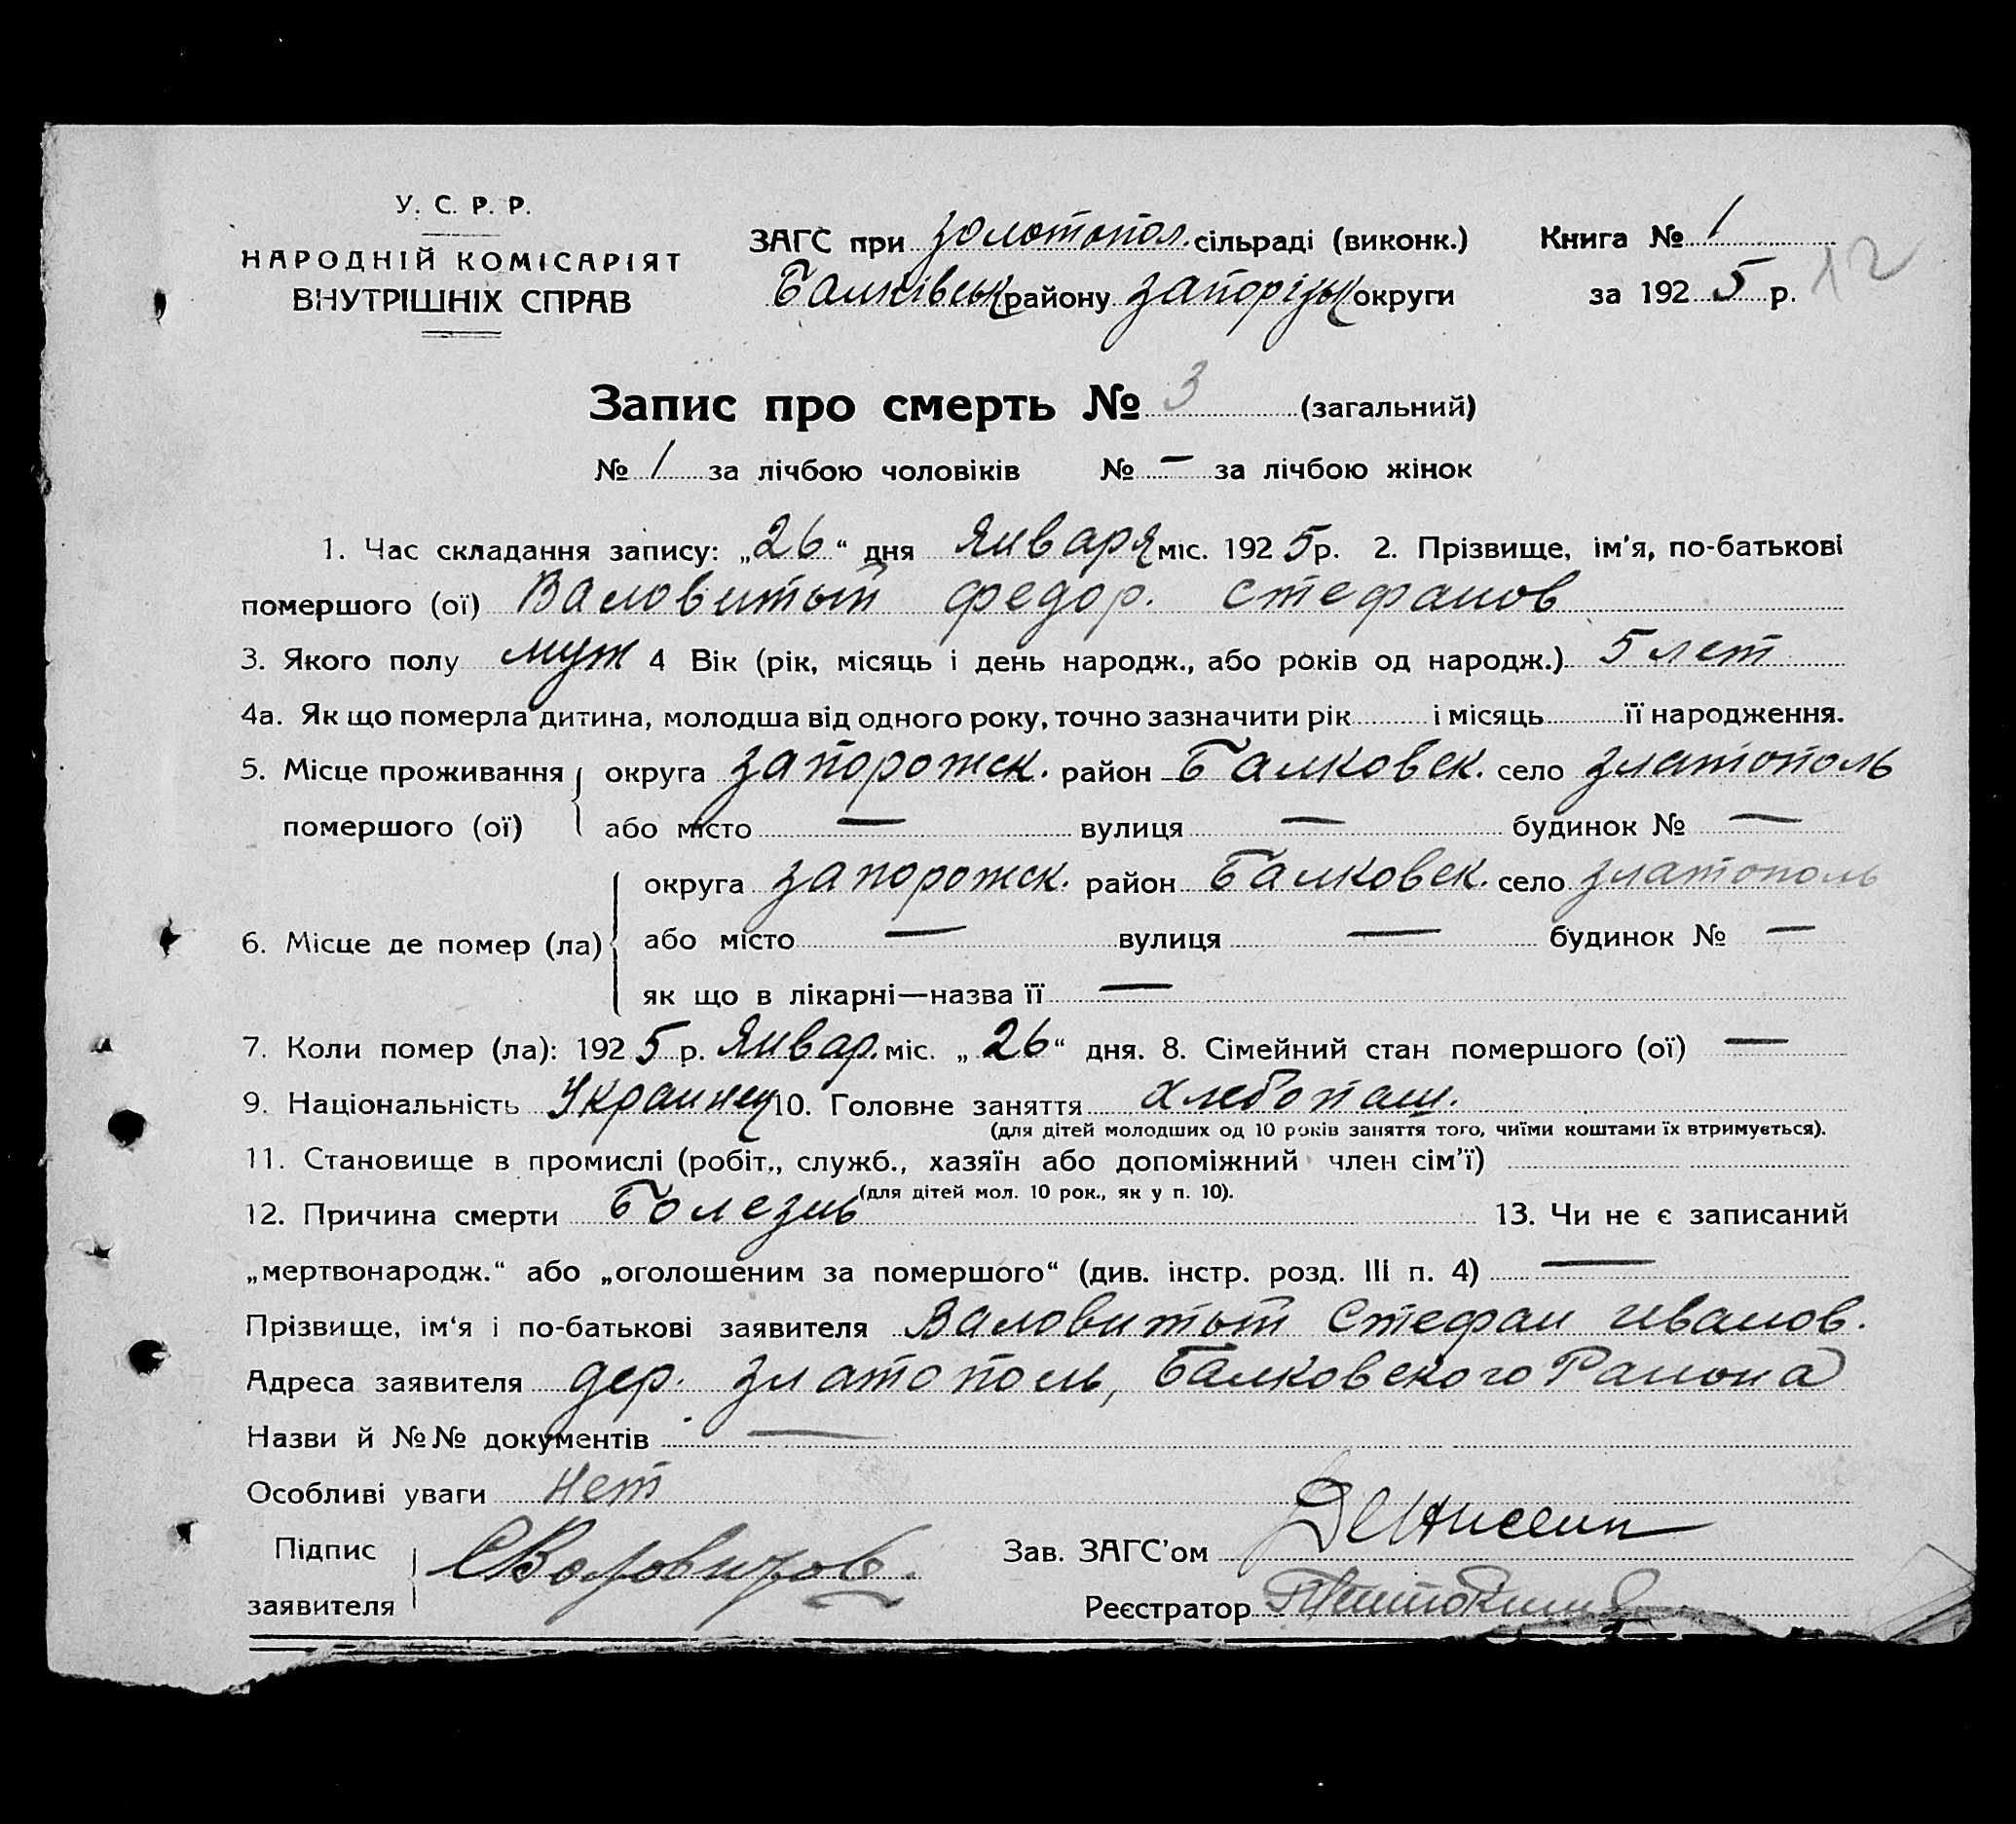 У. С. Р. Р.
НАРОДНІЙ КОМІСАРІЯТ
ВНУТРІШНІХ СПРАВ
ЗАГС при золотопол. сільраді (виконк.)
Балківськ району запорізьк округи
Книга № 1
за 1925 р.
12
Запис про смерть № 3 (загальний)
№ 1 за лічбою чоловіків № — за лічбою жінок
1. Час складання запису: „26“ дня Января міс. 1925 р. 2. Прізвище, ім'я, по-батькові
помершого (ої) Валовитый федор. Стефанов
3. Якого полу муж 4 Вік (рік, місяць і день народж., або років од народж.) 5 лет
4а. Як що померла дитина, молодша від одного року, точно зазначити рік і місяць її народження.
5. Місце проживання округа запорожск. район Балковск. село златополь
помершого (ої) або місто — вулиця — будинок № —
округа запорожск. район Балковск. село златополь
6. Місце де помер (ла) або місто — вулиця — будинок № —
як що в лікарні—назва її —
7. Коли помер (ла): 1925 р. Январ. міс. „26“ дня. 8. Сімейний стан помершого (ої) —
9. Національність Украинец 10. Головне заняття хлебопаш.
(для дітей молодших од 10 років заняття того, чиїми коштами їх втримується).
11. Становище в промислі (робіт., служб., хазяїн або допоміжний член сім'ї)
(для дітей мол. 10 рок., як у п. 10).
12. Причина смерти Болезнь 13. Чи не є записаний
„мертвонародж.“ або „оголошеним за помершого“ (див. інстр. розд. III п. 4) —
Прізвище, ім'я і по-батькові заявителя Валовитый Стефан Иванов.
Адреса заявителя дер. златополь, Балковского Района
Назви й №№ документів —
Особливі уваги Нет
Підпис
заявителя
Зав. ЗАГС'ом
Реєстратор